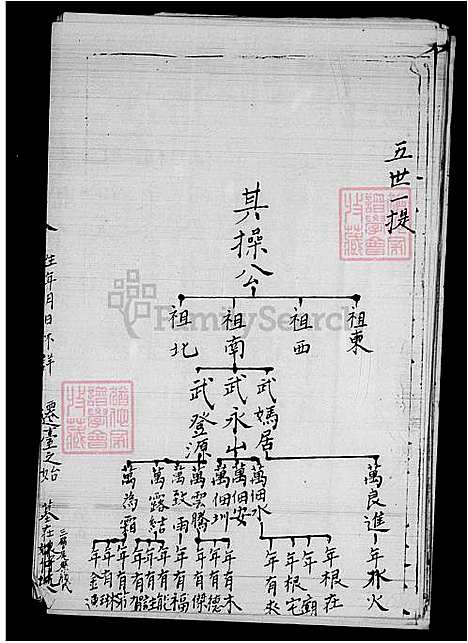 五世一提
其操公
祖東
祖西
祖南
祖北
武媽居
武永出
武登源
萬良進
萬佃水
萬佃安
萬佃圳
萬雲騰
萬致雨
萬露結
萬為霜
年水火
年根在
年廟
年根宅
年有來
年有木
年有德
年有傑
年有福
年有能
年有琳
年金
生年月日不詳
遷臺之始
墓在
FamilySearch